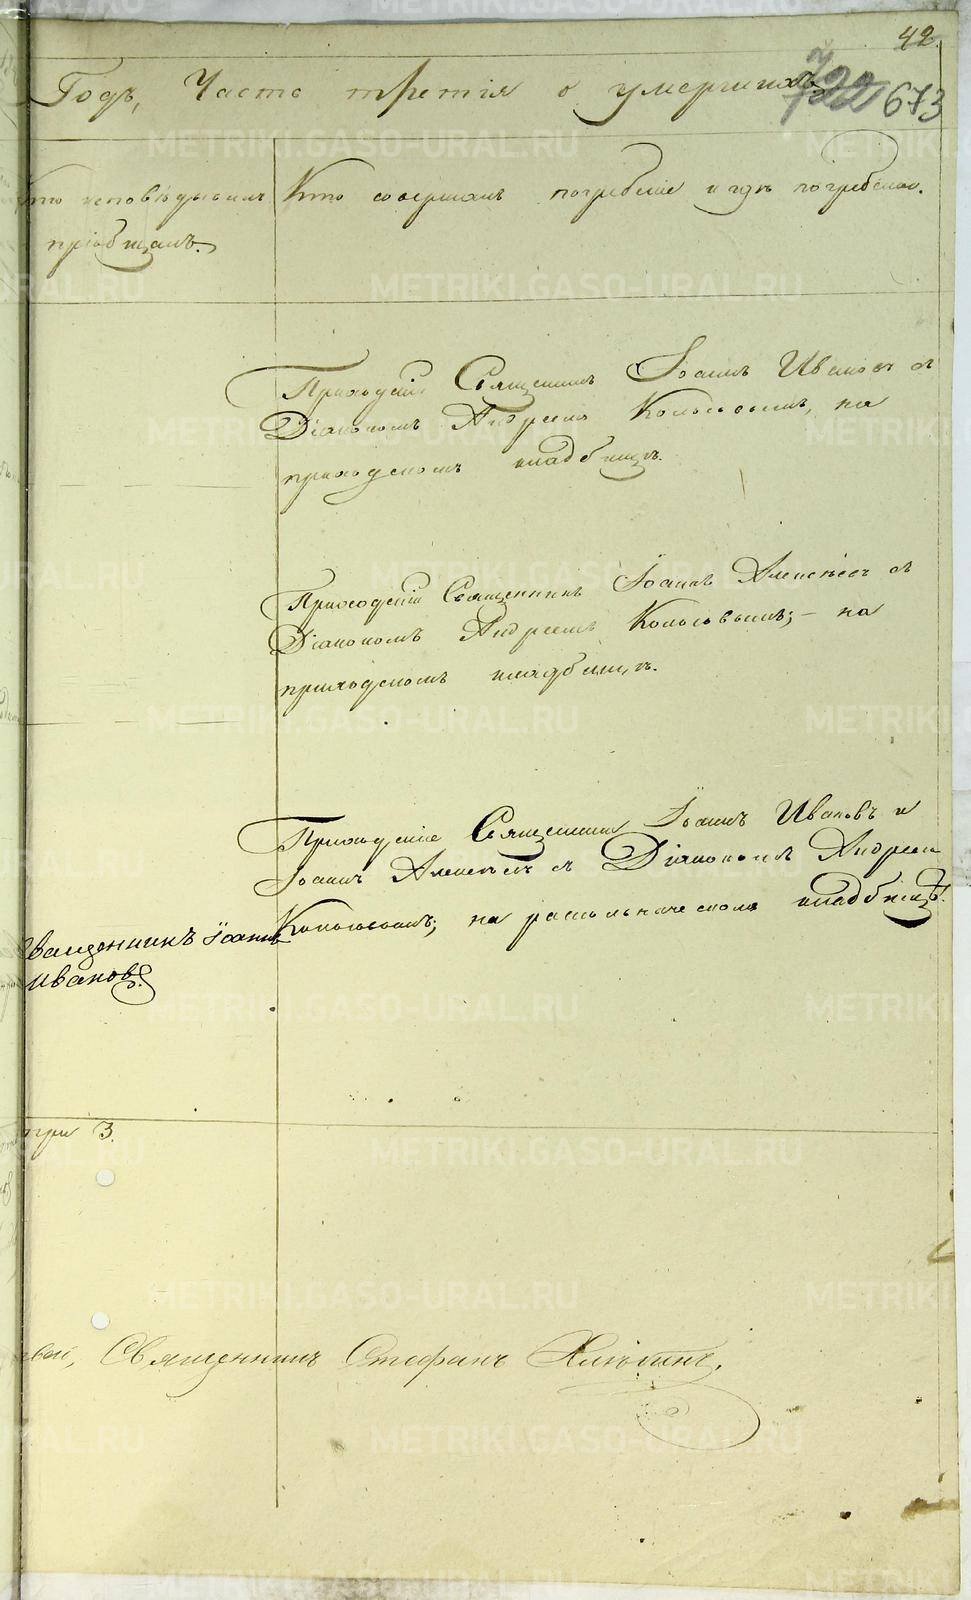 42.
Годъ, Часть третія о умершихъ
722 673
Кто исповѣдывалъ
пріобщалъ.
Кто совершалъ погребеніе и гдѣ погребены.
Приходскій Священникъ Іоаннъ Ивановъ съ
Діакономъ Андреемъ Колосовымъ, на
приходскомъ кладбищѣ.
Приходскій Священникъ Іоаннъ Алексѣевъ съ
Діакономъ Андреемъ Колосовымъ; – на
приходскомъ кладбищѣ.
Приходскіе Священники Іоаннъ Ивановъ и
Іоаннъ Алексѣевъ съ Діакономъ Андреемъ
Колосовымъ; на раскольническомъ кладбищѣ.
Священникъ Іоаннъ
Ивановъ.
три 3.
Священникъ Стефанъ
METRIKI.GASO-URAL.RU